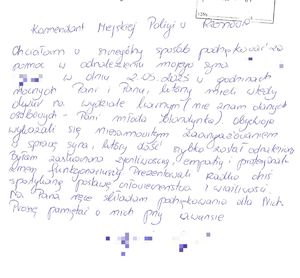 Komendant Miejskiej Policji w Radomiu
Chciałam w szczególny sposób podziękować za
pomoc w odnalezieniu mojego syna
w dniu 2.05.2023 w godzinach
nocnych Pani i Panu, którzy mieli wtedy
dyżur na wydziale (nie znam danych
osobowych - Pani młoda blondynka). Obydwoje
wykazali się niesamowitym zaangażowaniem
w sprawę syna, który dość szybko został odnaleziony
Byłam życzliwością, empatią i
funkcjonariuszy. Prezentowali rzadko dziś
spotykaną postawę człowieczeństwa i wrażliwości.
Na Pana ręce składam podziękowania dla Nich
Proszę pamiętać o nich przy awansie